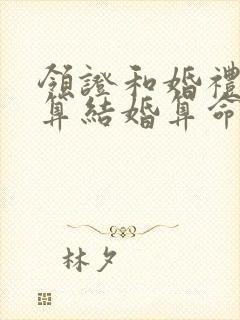 領證和婚禮
算結婚算命
林夕